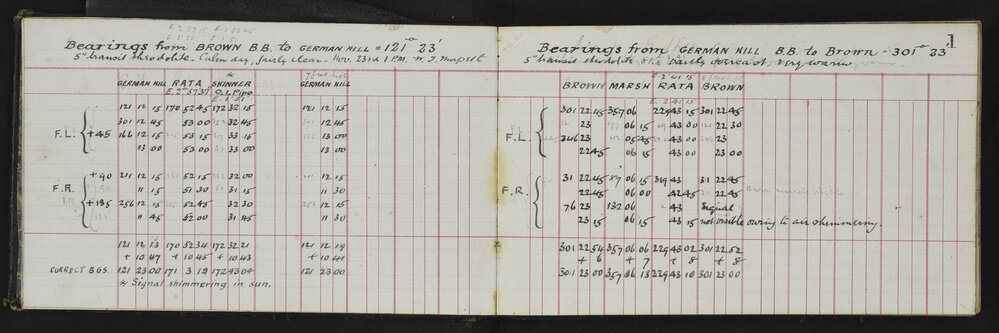 Bearings from BROWN B.B. to GERMAN HILL = 121° 23'
5" transit theodolite. Calm day, fairly clear. Nov. 23rd 1 P.M.
GERMAN HILL RATA * SKINNER GERMAN HILL
E. 2° 57' 37 O.L. Pipe
121 12 15 170 52 45 172 32 15 121 12 15
301 12 45 53 00 32 45 301 12 45
F.L. +45 166 12 15 53 15 33 15 13 00
13 00 53 00 33 00 13 00
+90 211 12 15 52 15 32 00 12 15
F.R. " 15 51 30 31 15 11 30
+135 256 12 15 52 45 32 30 256 12 15
" 45 52 00 31 45 11 30
121 12 13 170 52 34 172 32 21 121 12 19
+ 10 47 + 10 45 + 10 43 + 10 41
CORRECT BGS. 121 23 00 171 3 19 172 43 04 121 23 00
* Signal shimmering in sun.
1
Bearings from GERMAN HILL B.B. to Brown = 301° 23'
5" transit theodolite. Partly overcast. Very warm.
BROWN MARSH RATA BROWN
301 22 45 357 06 229 43 15 301 22 45
23 06 15 43 00 22 30
F.L. 346 23 05 45 43 00 23
22 45 06 15 43 00 23 00
31 22 45 87 06 15 319 43 31 22 45
F.R. 22 45 06 00 42 45 22 45
76 23 132 06 43 Signal
23 15 06 15 43 15 not visible owing to air shimmering.
301 22 54 357 06 06 229 43 02 301 22 52
+ 6 + 7 + 8 + 8
301 23 00 357 06 13 229 43 10 301 23 00